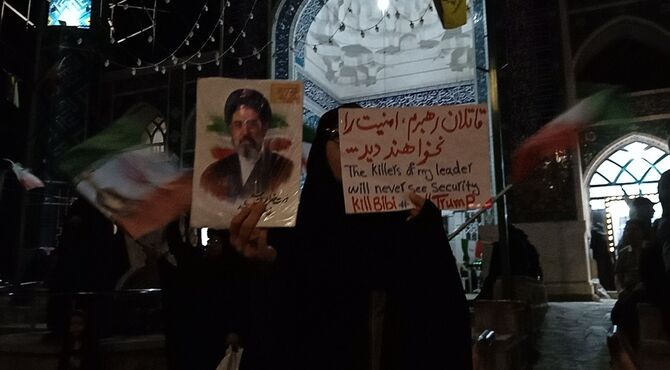 قاتلان رهبرم، امنیت را
نخواهند دید...
The killers of my leader
will never see Security
KillBIbi #
Trump